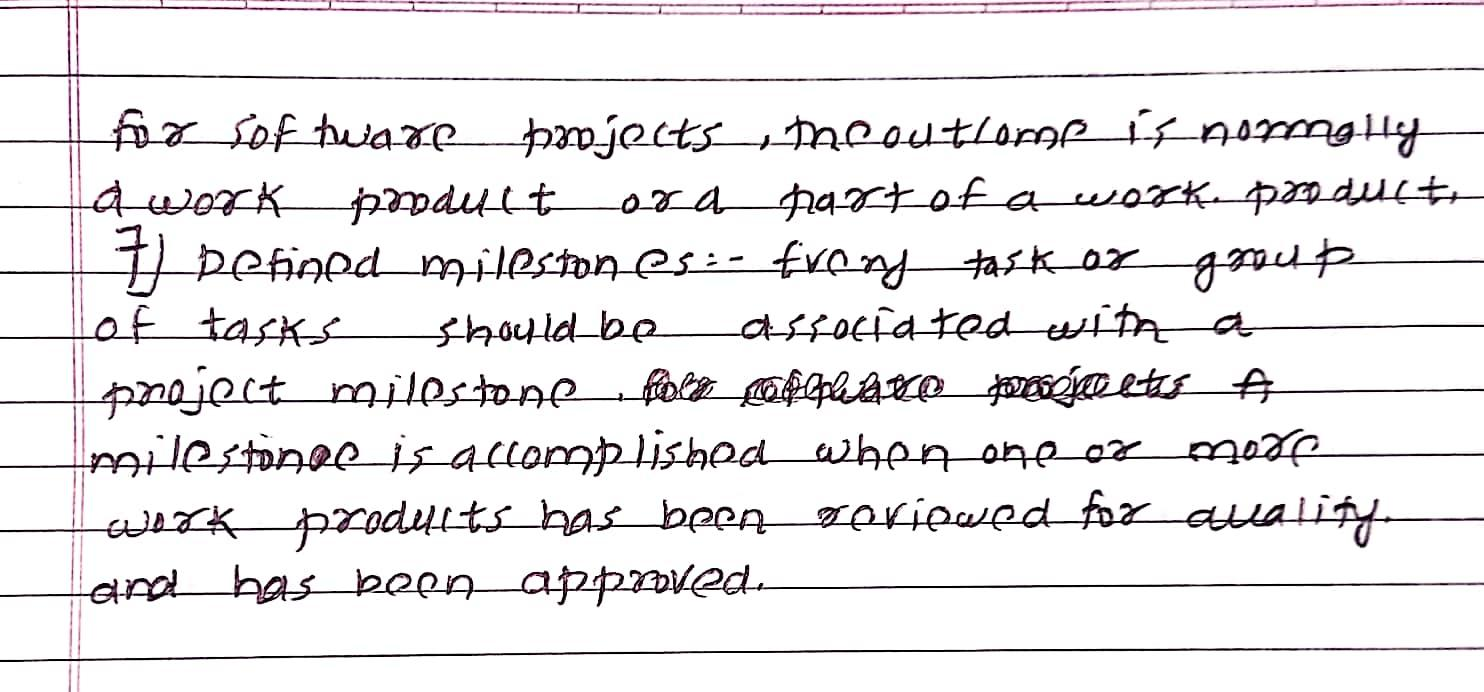 for software projects, the outcome is normally
a work product or a part of a work. product.
7) Defined milestones:- Every task or group
of tasks should be associated with a
project milestone. for software projects A
milestonee is accomplished when one or more
work products has been reviewed for quality.
and has been approved.